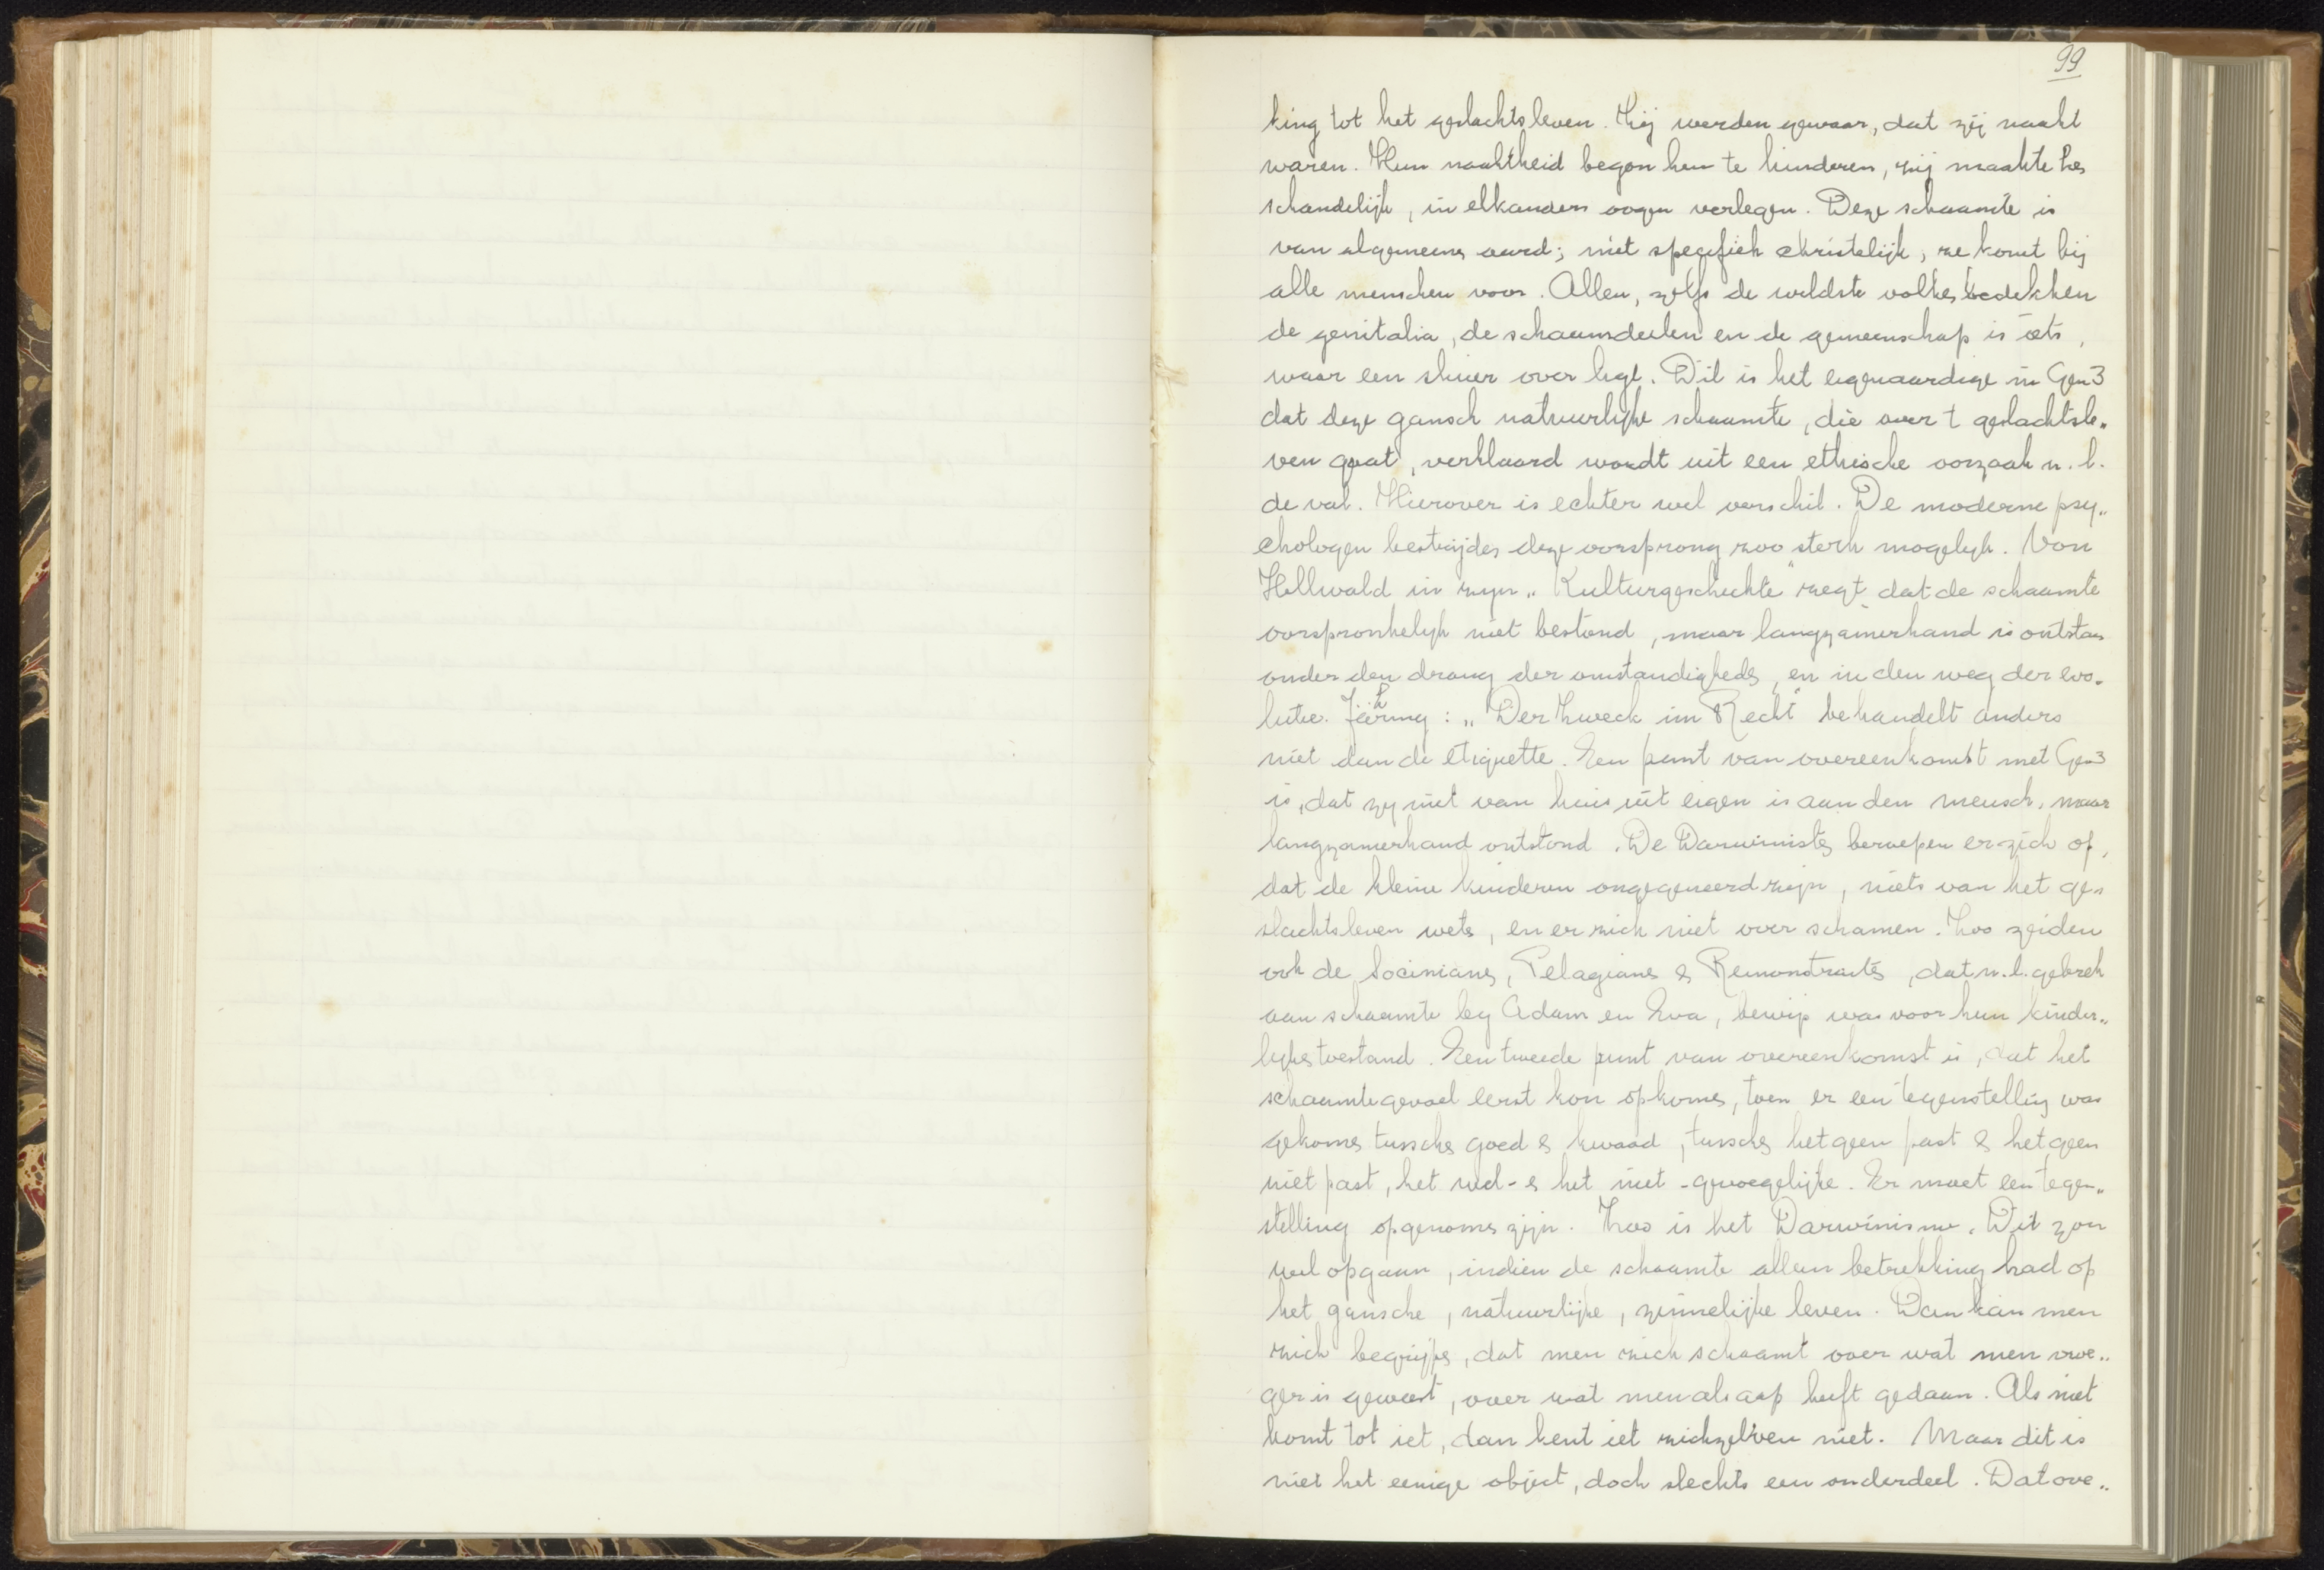 99
king tot het geslachtsleven. Zij werden gewaar, dat zij naakt
waren. Hun naaktheid begon hen te hinderen, zij maakte hen
schandelijk, in elkanders oogen verlegen. Deze schaamte is
van algemeenen aard; niet specifiek christelijk, ze komt bij
alle menschen voor. Allen, zelfs de wildste volken bedekken
de genitalia, de schaamdeelen en de gemeenschap is iets,
waar een sluier over ligt. Dit is het eigenaardige in Gen 3
dat deze gansch natuurlijke schaamte, die over 't geslachtsle„
ven gaat, verklaard wordt uit een ethische oorzaak n.l.
de val. Hierover is echter wel verschil. De moderne psy„
chologen bestrijden deze oorsprong zoo sterk mogelijk. Von
Hellwald in zijn „Kulturgeschichte" zegt dat de schaamte
oorspronkelijk niet bestond, maar langzamerhand is ontstaan
onder den drang der omstandigheden, en in den weg der evo„
lutie. Jhering: „Der Zweck im Recht" behandelt anders
niet dan de etiquette. Een punt van overeenkomst met Gen 3
is, dat zij niet van huis uit eigen is aan den mensch, maar
langzamerhand ontstond. De Darwinisten beroepen er zich op,
dat de kleine kinderen ongegeneerd zijn, niets van het ge„
slachtsleven weten, en er zich niet over schamen. Zoo zeiden
ook de Socinianen, Pelagianen & Remonstranten, dat n.l. gebrek
aan schaamte bij Adam en Eva, bewijs was voor hun kinder„
lijken toestand. Een tweede punt van overeenkomst is, dat het
schaamtegevoel eerst kon opkomen, toen er een tegenstelling was
gekomen tusschen goed & kwaad, tusschen hetgeen past & hetgeen
niet past, het wel- & het niet-gevoegelijke. Er moet een tegen„
stelling opgenomen zijn. Zoo is het Darwinisme. Dit zou
wel opgaan, indien de schaamte alleen betrekking had op
het gansche, natuurlijke, zinnelijke leven. Dan kan men
zich begrijpen, dat men zich schaamt over wat men vroe„
ger is geweest, over wat men als aap heeft gedaan. Als niet
komt tot iet, dan kent iet zichzelven niet. Maar dit is
niet het eenige object, doch slechts een onderdeel. Dat ove„